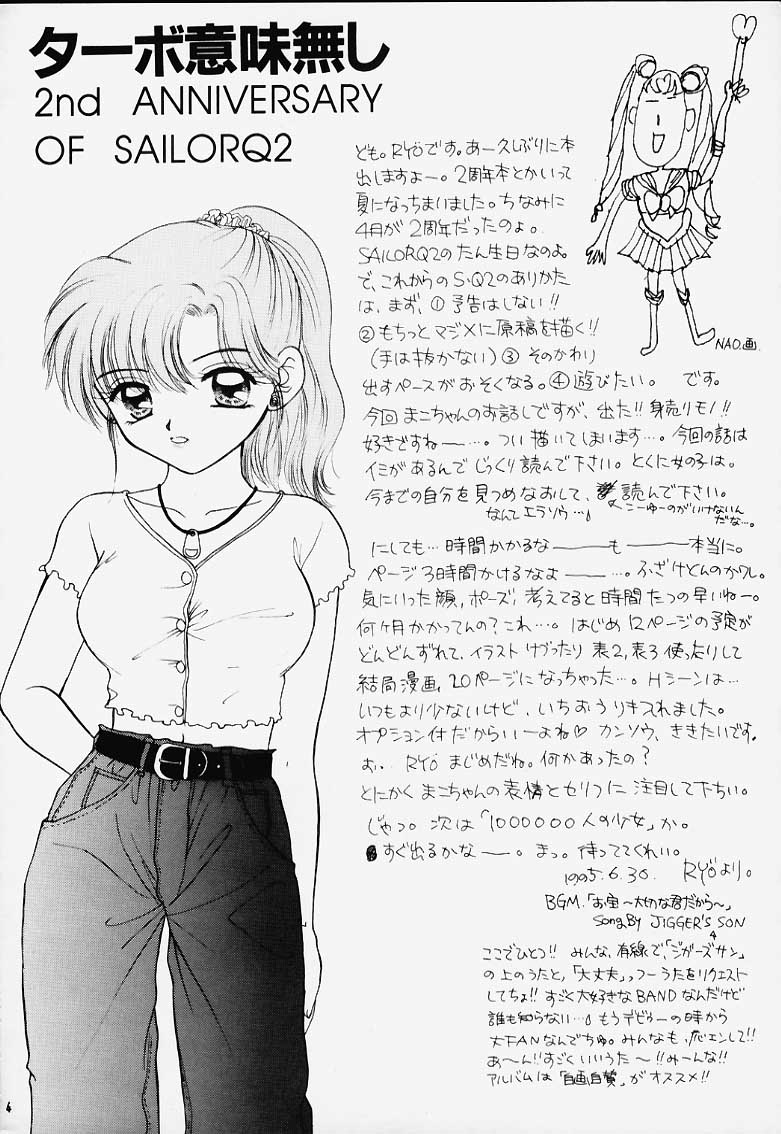 ターボ意味無し
2nd ANNIVERSARY
OF SAILORQ2
ども。RYÖです。あー久しぶりに本
出しますよー。2周年本とかいって
夏になっちまいました。ちなみに
4月が2周年だったのよ。
SAILORQ2のたん生日なのよ。
で、これからのS・Q2のありかた
は、まず、①予告はしない!!
②もちっとマジメに原稿を描く!!
(手は抜かない)③そのかわり
出すペースがおそくなる。④遊びたい。です。
NAO.画
今回まこちゃんのお話しですが、出た!!身売りモノ!!
好きですねー…。つい描いてしまいます…。今回の話は
イミがあるんでじっくり読んで下さい。とくに女の子は。
今までの自分を見つめなおして、読んで下さい。
なんてエラソウ…♪
こーゆーのがいけないん
だな…。
にしても…時間かかるなーもー本当に。
ページ3時間かけるなよー…。ふざけとんのかワレ。
気にいった顔、ポーズ、考えてると時間たつの早いねー。
何ヶ月かかってんの?これ…。はじめ12ページの予定が
どんどんずれて、イラストけづったり表2、表3使ったりして
結局漫画、20ページになっちゃった…。Hシーンは…
いつもより少ないけど、いちおうりきいれました。
オプション付だからいーよね♡カンソウ、ききたいです。
お、RYÖまじめだね。何かあったの?
とにかくまこちゃんの表情とセリフに注目して下ちい。
じゃっ。次は「1000000人の少女」か。
すぐ出るかなー。まっ。待っててくれい。
1995.6.30. RYÖより。
BGM.「お宝〜大切な君だから〜」
Song By JIGGER'S SON
ここでひとつ!!みんな、有線で、「ジガーズサン」
の上のうたと、「大丈夫」っつーうたをリクエスト
してちょ!!すごく大好きなBANDなんだけど
誰も知らない…♪もうデビューの時から
大FANなんでちゅ。みんなも、応エンして!!
あ〜ん!!すごくいいうた〜!!みーんな!!
アルバムは「自画自賛」がオススメ!!
4